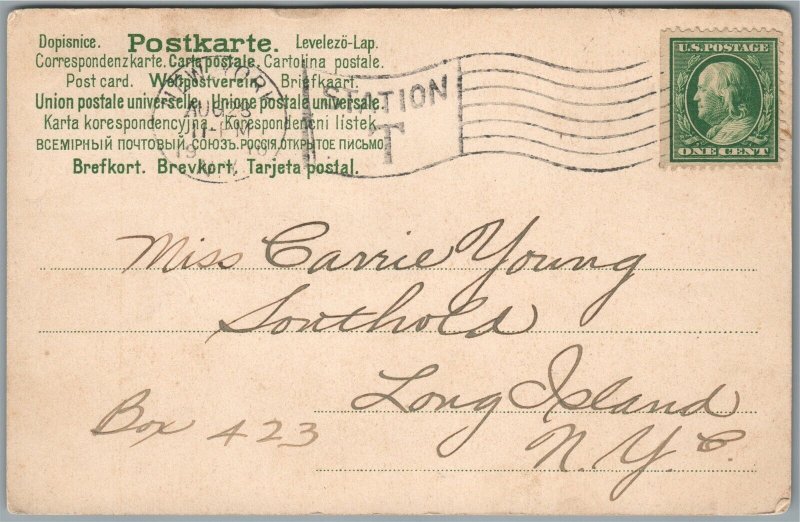 Dopisnice. Postkarte. Levelezö-Lap.
Correspondenzkarte. Carte postale. Cartolina postale.
Post card. Weltpostverein. Briefkaart.
Union postale universelle. Unione postale universale.
Karta korespondencyjna. Korespondenčni listek.
ВСЕМІРНЫЙ ПОЧТОВЫЙ СОЮЗЪ. РОССІЯ. ОТКРЫТОЕ ПИСЬМО.
Brefkort. Brevkort. Tarjeta postal.
NEW YORK
AUG
STATION
T
U.S. POSTAGE
ONE CENT
Miss Carrie Young
Southold
Long Island
Box 423
N.Y.